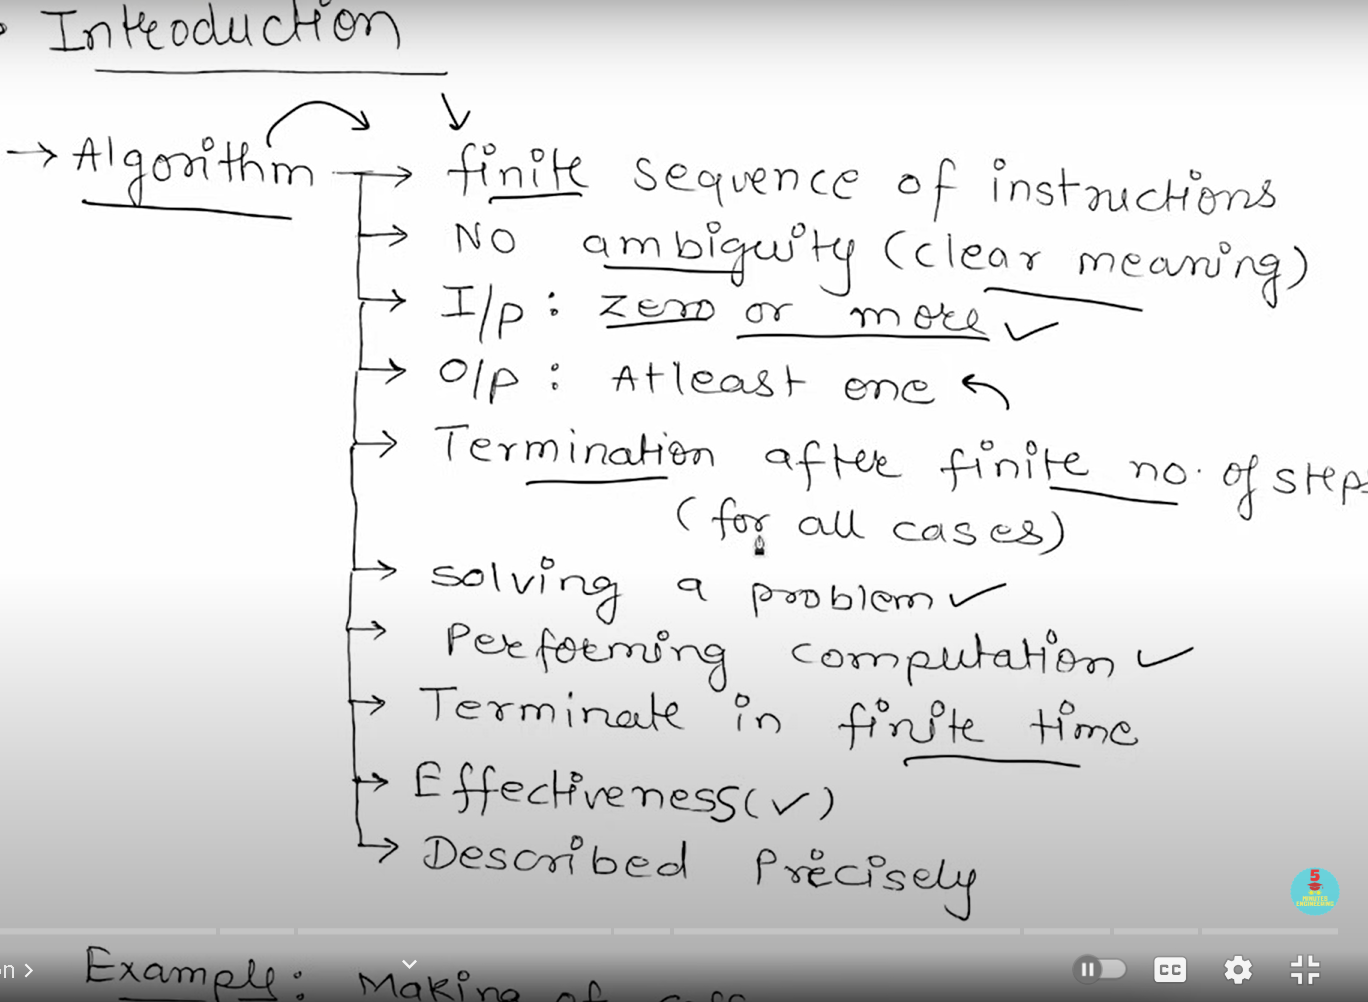 Introduction
→ Algorithm → finite sequence of instructions
→ NO ambiguity (clear meaning)
→ I/p : zero or more ✓
→ O/p : Atleast one
→ Termination after finite no. of steps
(for all cases)
→ solving a problem ✓
→ Performing computation ✓
→ Terminate in finite time
→ Effectiveness (✓)
→ Described Precisely
5
MINUTES
ENGINEERING
Example: Making of
n >
CC